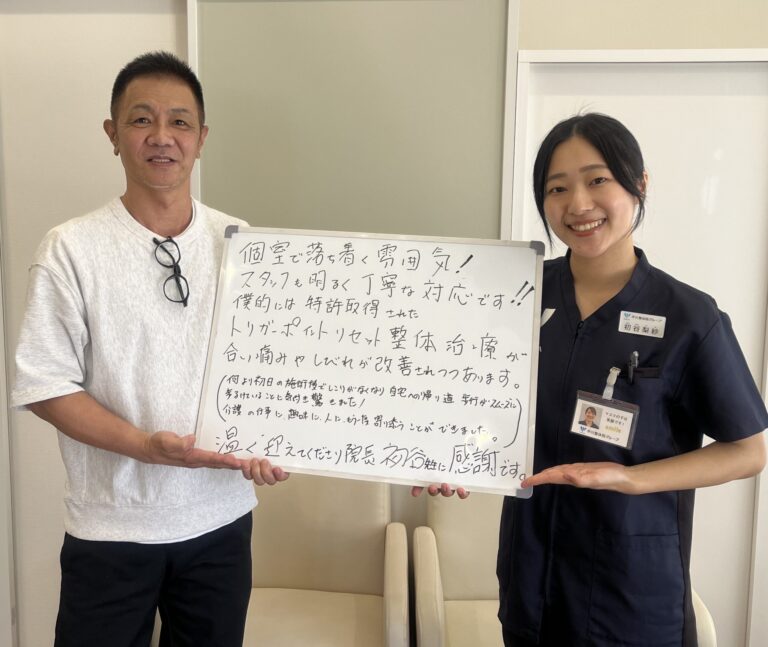 個室で落ち着く雰囲気!
スタッフも明るく丁寧な対応です!!
僕的には特許取得された
トリガーポイントリセット整体治療が
合い痛みやしびれが改善されつつあります。
(何より初日の施術後でしこりがなくなり自宅への帰り道 歩行がスムーズに
歩けていることに気付き驚きました!
介護の仕事に趣味に、人に、もう1度寄り添うことができました。)
温く迎えてくださり院長 初谷 に感謝です。
整体院グループ
初谷梨紗
笑顔です!
整体院グループ